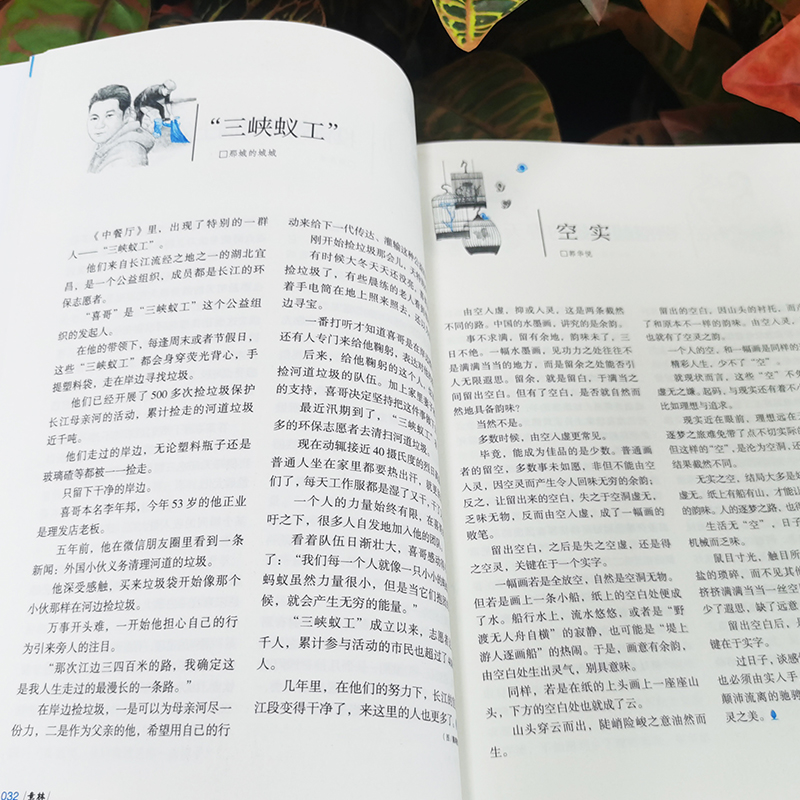 “三峡蚁工”
□那城的城城
《中餐厅》里，出现了特别的一群
人——“三峡蚁工”。
他们来自长江流经之地之一的湖北宜
昌，是一个公益组织，成员都是长江的环
保志愿者。
“喜哥”是“三峡蚁工”这个公益组
织的发起人。
在他的带领下，每逢周末或者节假日，
这些“三峡蚁工”都会身穿荧光背心，手
提塑料袋，走在岸边寻找垃圾。
他们已经开展了500多次捡垃圾保护
长江母亲河的活动，累计捡走的河道垃圾
近千吨。
他们走过的岸边，无论塑料瓶子还是
玻璃碴等都被一一捡走。
只留下干净的岸边。
喜哥本名李年邦，今年53岁的他正业
是理发店老板。
五年前，他在微信朋友圈里看到一条
新闻：外国小伙义务清理河道的垃圾。
他深受感触，买来垃圾袋开始像那个
小伙那样在河边捡垃圾。
万事开头难，一开始他担心自己的行
为引来旁人的注目。
“那次江边三四百米的路，我确定这
是我人生走过的最漫长的一条路。”
在岸边捡垃圾，一是可以为母亲河尽一
份力，二是作为父亲的他，希望用自己的行
动来给下一代传达、灌输这种
刚开始捡垃圾那会儿，
有时候大冬天天还没亮，
捡垃圾了，有些晨练的老人看
着手电筒在地上照来照去，还以
边寻宝。
一番打听才知道喜哥是在岸
还有人专门来给他鞠躬，表达对
后来，给他鞠躬的这个人，
捡河道垃圾的队伍。加上家里妻
的支持，喜哥决定坚持把这件事
最近汛期到了，“三峡蚁工”
多的环保志愿者去清扫河道垃圾。
现在动辄接近40摄氏度的烈日
普通人坐在家里都要热出汗，就更
们了，每天工作服都是湿了又干，干
一个人的力量始终有限，在喜
吁之下，很多人自发地加入他的团队
看着队伍日渐壮大，喜哥感动
了：“我们每一个人就像一只小小的
蚂蚁虽然力量很小，但是当它们抱
候，就会产生无穷的能量。”
“三峡蚁工”成立以来，志愿者
千人，累计参与活动的市民也超过了
人。
几年里，在他们的努力下，长江的
江段变得干净了，来这里的人也更多了。
032 意林
空 实
□郭华悦
由空入虚，抑或入灵，这是两条截然
不同的路。中国的水墨画，讲究的是余韵。
事不求满，留有余地，韵味未了，三
日不绝。一幅水墨画，见功力之处往往不
是满满当当的地方，而是留余之处能否引
人无限遐思。留余，就是留白，于满当之
间留出空白。但有了空白，是否就自然而
然地具备韵味？
当然不是。
多数时候，由空入虚更常见。
毕竟，能成为佳品的是少数。普通画
者的留空，多数事未如愿，非但不能由空
入灵，因空灵而产生令人回味无穷的余韵；
反之，让留出来的空白，失之于空洞虚无，
乏味无物，反而由空入虚，成了一幅画的
败笔。
留出空白，之后是失之空虚，还是得
之空灵，关键在于一个实字。
一幅画若是全放空，自然是空洞无物。
但若是画上一条小船，纸上的空白处便成
了水。船行水上，流水悠悠，或者是“野
渡无人舟自横”的寂静，也可能是“堤上
游人逐画船”的热闹。于是，画意有余韵，
由空白处生出灵气，别具意味。
同样，若是在纸的上头画上一座座山
头，下方的空白处也就成了云。
山头穿云而出，陡峭险峻之意油然而
生。
留出的空白，因山头的衬托，而
了和原本不一样的韵味。由空入灵，
也就有了空灵之韵。
一个人的空，和一幅画是同样的
精彩人生，少不了“空”。
就现状而言，这些“空”不免
虚无之嫌。起码，与现实还有着不小
比如理想与追求。
现实近在眼前，理想远在
逐梦之旅难免带了点不切实际的
但这样的“空”，是沦为空洞，还
结果截然不同。
无实之空，结局大多是
虚无。纸上有船有山，才能让
的韵味。人的逐梦之路，也
生活无“空”，日子
机械而乏味。
鼠目寸光，触目所
盐的琐碎，而不见其他
挤挤满满当当一丝空
少了遐思，缺了远意
留出空白后，是
键在于实字。
过日子，谈感情
也必须由实入手
颠沛流离的驰骋
灵之美。